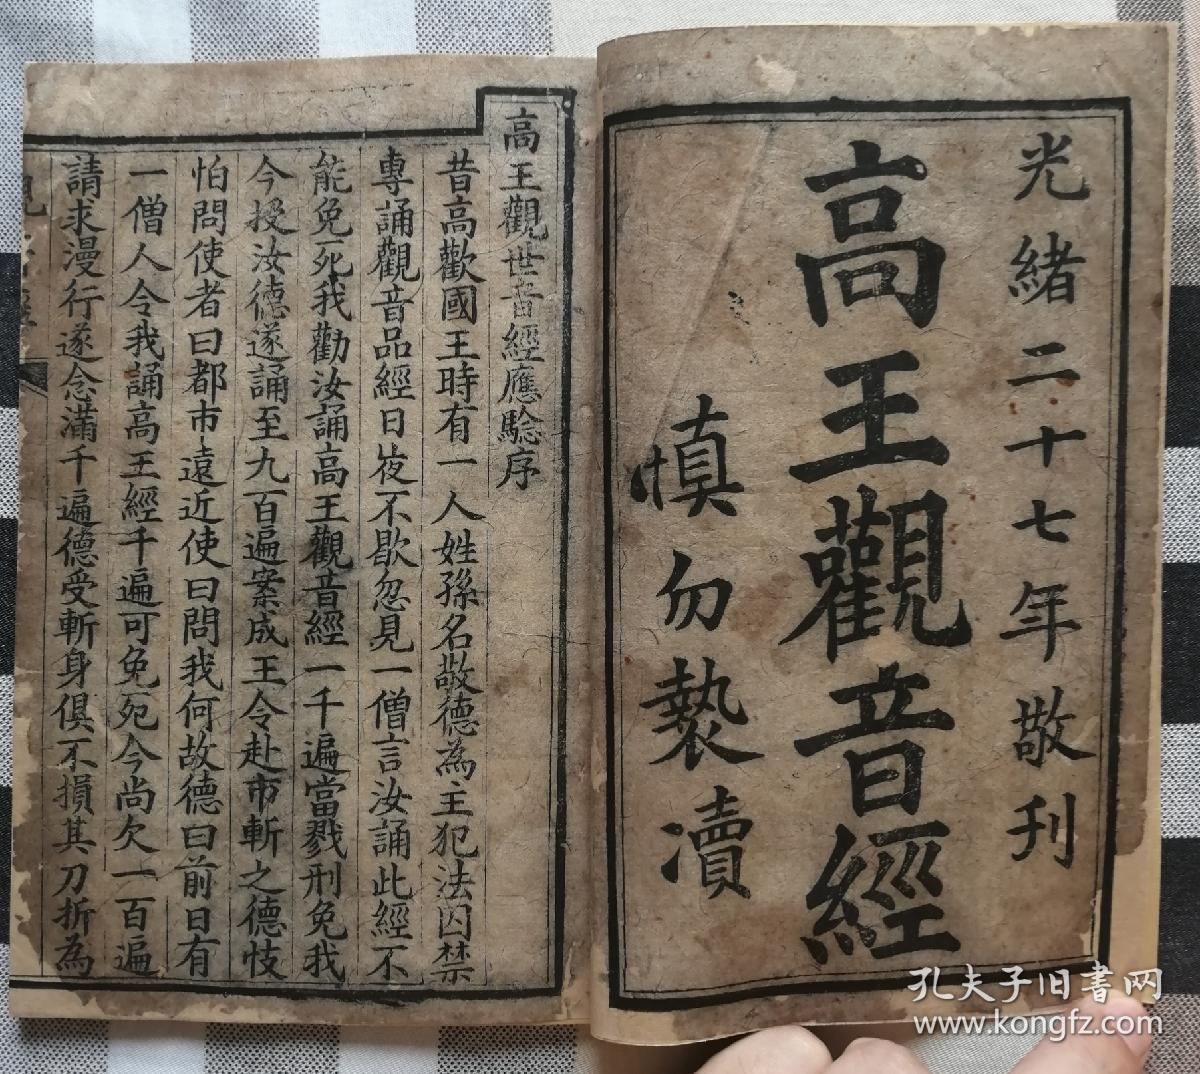 光緒二十七年敬刊
高王觀音經
慎勿褻瀆
高王觀世音經應驗序
昔高歡國王時有一人姓孫名敬德為主犯法囚禁
專誦觀音品經日夜不歇忽見一僧言汝誦此經不
能免死我勸汝誦高王觀音經一千遍當戮刑免我
今授汝德遂誦至九百遍案成王令赴市斬之德忮
怕問使者曰都市遠近使曰問我何故德曰前日有
一僧人令我誦高王經千遍可免死今尚欠一百遍
請求漫行遂念滿千遍德受斬身俱不損其刀折為
孔夫子旧书网
www.kongfz.com